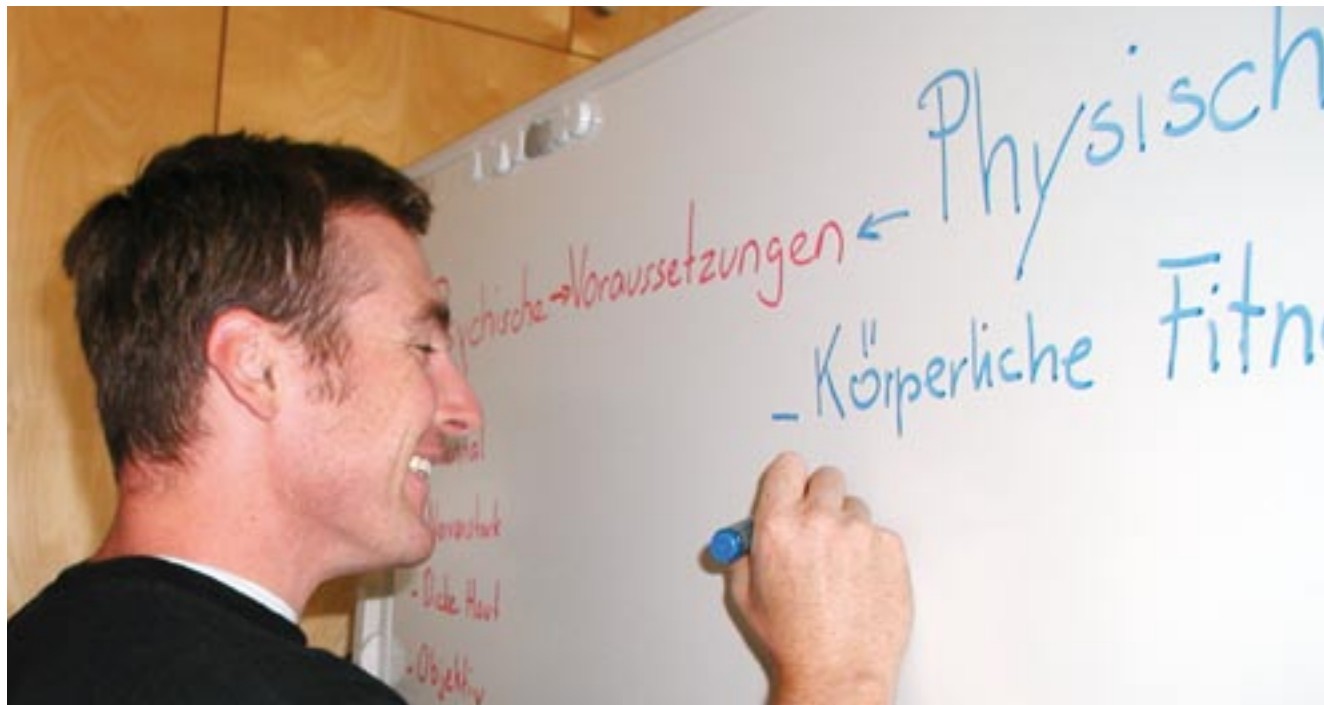 Physisch
Voraussetzungen ←
ychische →
- Körperliche Fitn
- Dicke Haut
- Objektiv